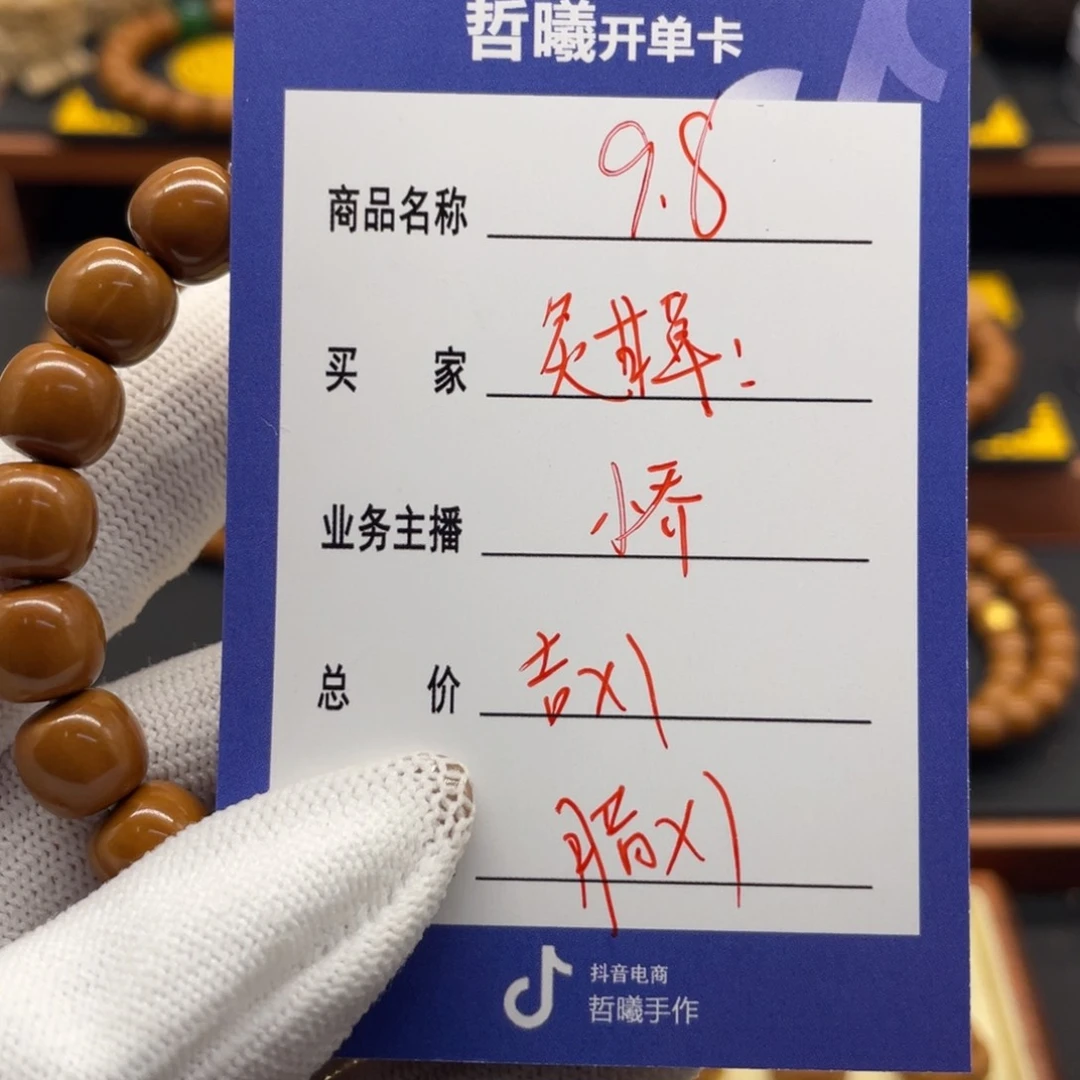 哲曦开单卡
商品名称 9.8
买家
业务主播 小乔
总价 吉X1
腊X1
抖音电商
哲曦手作